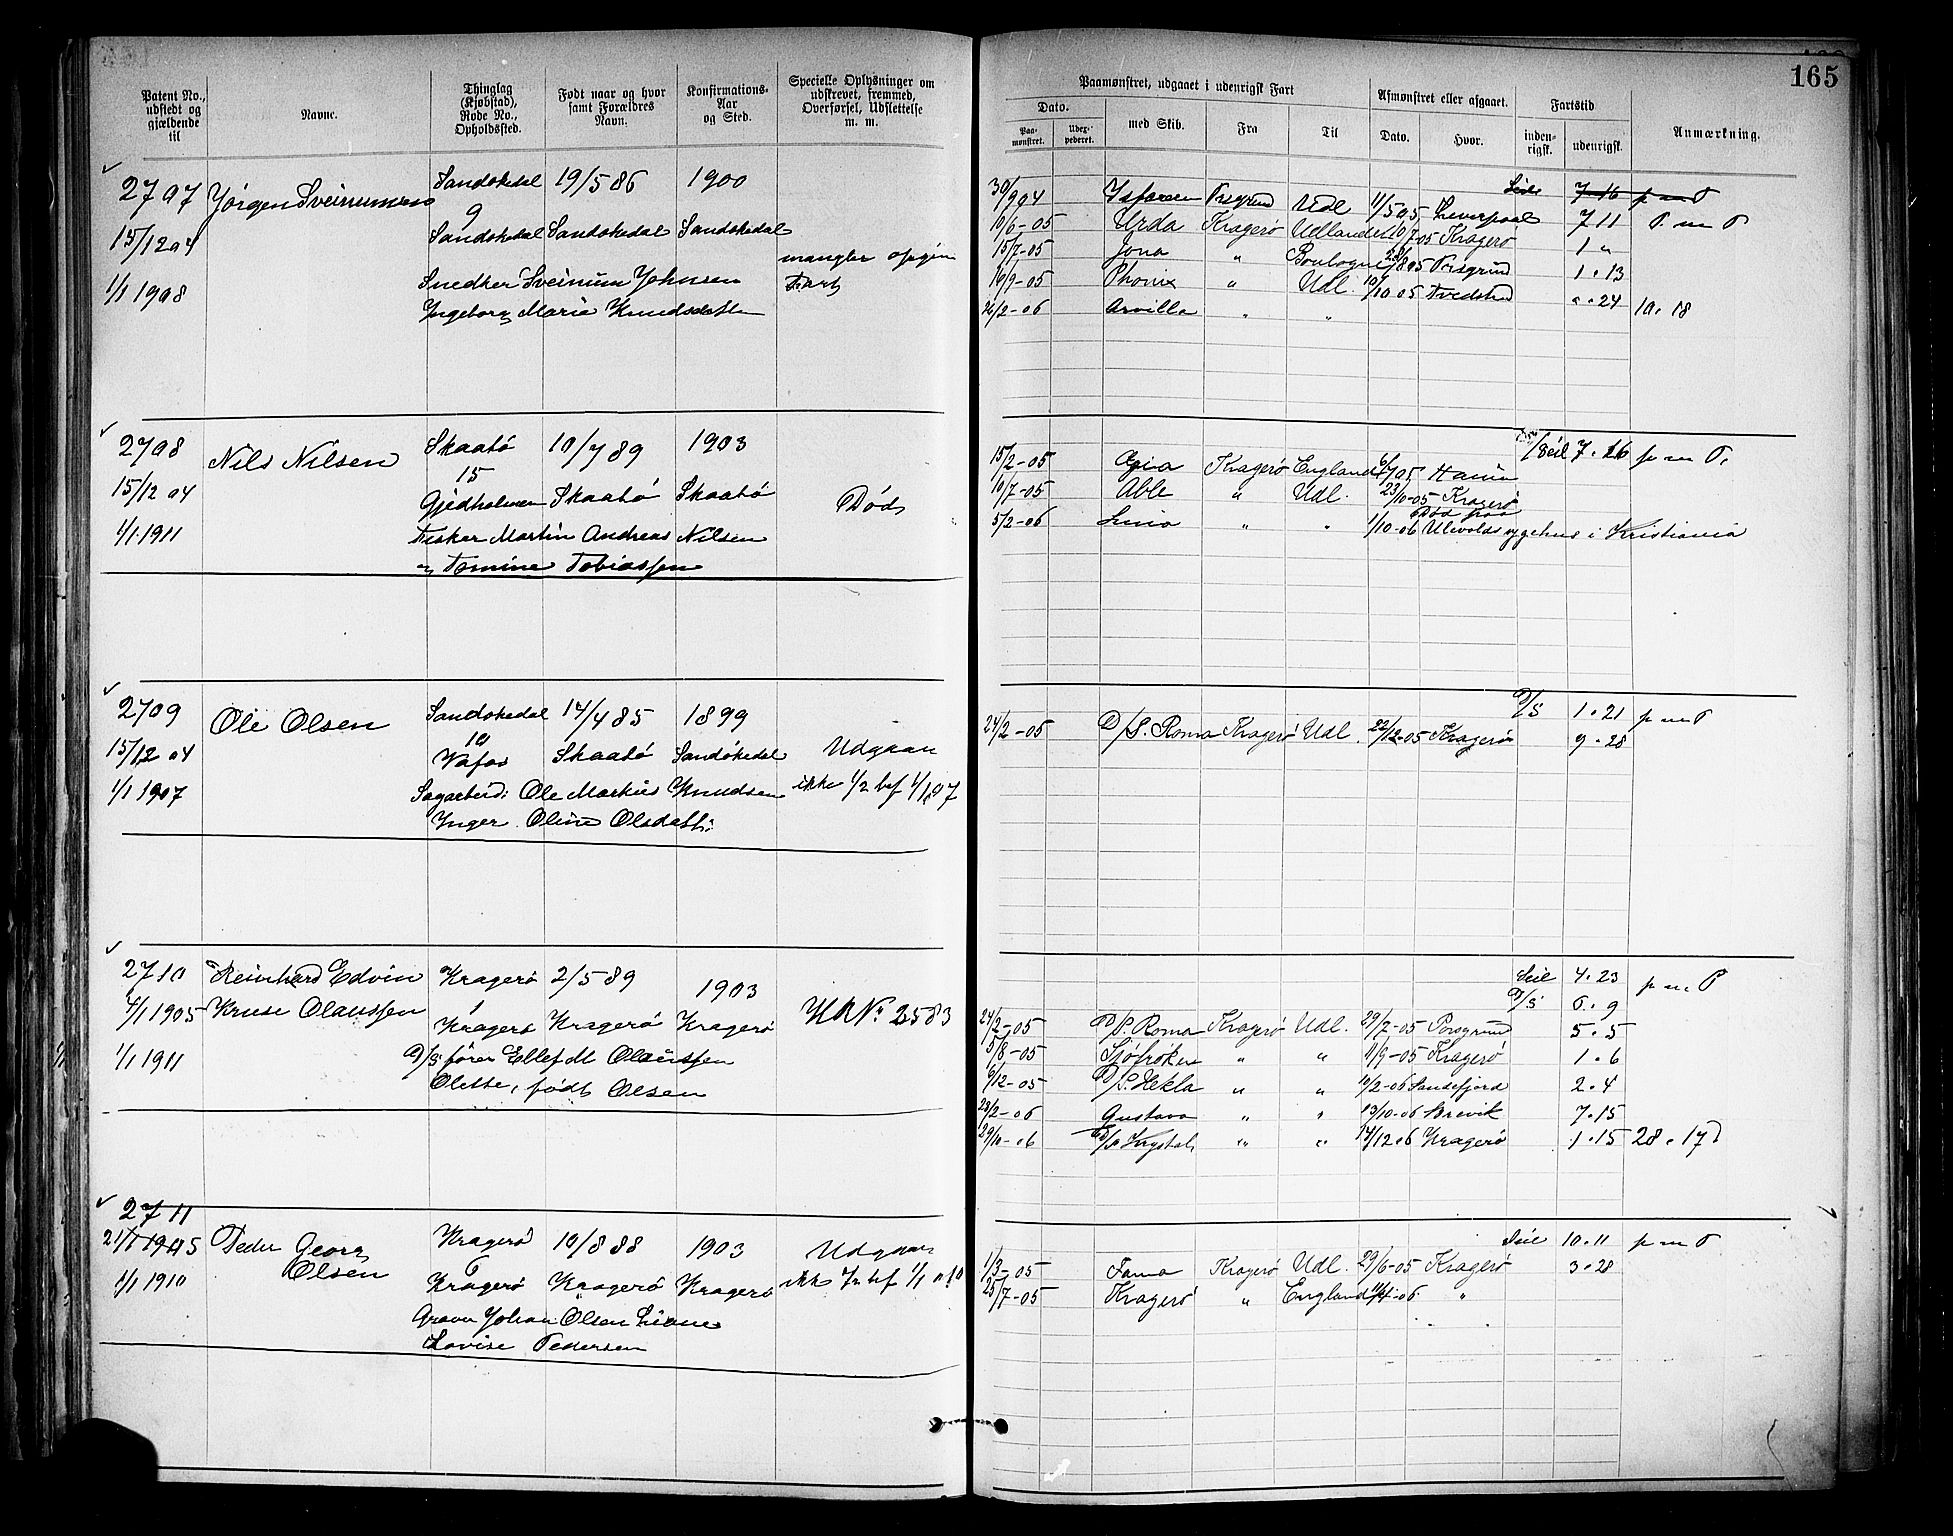 165
Patent No., udstedt og gjældende til
Navne.
Thinglag (Kjøbstad), Rode No., Opholdssted.
Født naar og hvor samt Forældres Navn.
Konfirmations-Aar og Sted.
Specielle Oplysninger om udskrevet, fremmed, Overførsel, Udslettelse m. m.
Paamønstret, udgaaet i udenrigsk Fart
Afmønstret eller afgaaet.
Fartstid
Anmærkning.
Dato.
Paa-mønstret.
Udex-pederet.
med Skib.
Fra
Til
Dato.
Hvor.
inden-rigsk.
udenrigsk.
2707 Jørgen Sveinumsen Sandøkedal 19/5 86 1900
15/12 04 9 Sandøkedal Sandøkedal Sandøkedal
1/1 1908 Snedker Sveinum Johnsen
Ingeborg Maria Knudsdatter
mangler opgive Fart
Seile 7-16 p m P
30/9 04 Porsgrund Udl 11/5 05 Liverpool 7 11 P. m P
10/6-05 Urda Kragerø Udlandet 10/7-05 Kragerø 1 "
15/7-05 Jona " Boulogne 23/8 05 Porsgrund 1 . 13
19/9-05 Phønix " Udl. 10/10 05 Tvedestrand " . 24
2/2-06 Arvilla " " 10. 18
2708 Nils Nilsen Skaatø 10/7 89 1903
15/12 04 15 Gjedholmen Skaatø Skaatø
1/1.1911 Fisker Martin Andreas Nilsen
og Tomine Tobiassen
Død
Seil 7. 26 p m P.
15/2-05 Kragerø England
10/7-05 Able " Udl. 23/10-05 Kragerø
5/2-06 " " 1/10-06 Død paa Ulevolds sygehus i Kristiania
2709 Ole Olsen Sandøkedal 14/4 85 1899
15/12 04 10 Vafos Skaatø Sandøkedal
1/1 1907 Sagarbeid: Ole Markus Knudsen
Inger Oline Olsdatter
Udgaar ikke 1/2 bef 1/1 07
D/S 1. 21 p m P
24/2-05 D/S. Roma Kragerø Udl. 22/12-05 Kragerø 9 . 28
2710 Reinhard Edvin Kragerø 2/5 89 1903
4/1 1905 Kruse Olaussen 1 Kragerø Kragerø Kragerø
1/1 1911 D/S fører Ellef M Olaussen
Olette, født Olsen
HR No 2583
Seil 4. 23 p m. P
D/S 6. 9
24/2-05 D/S. Roma Kragerø Udl. 29/7-05 Porsgrund 5. 5
5/8-05 Sjøfrøken " " 11/9-05 Kragerø 1. 6
6/12-05 D/S. Hekla " " 10/2-06 Sandefjord 2. 4
28/2-06 Gustava " " 13/10-06 Brevik 7. 15
29/10-06 D/S Krystal " " 14/12 06 Kragerø 1. 15 28. 17
2711
21/1 1905 Peder Georg Olsen Kragerø 10/8 88 1903
1/1 1910 6 Kragerø Kragerø Kragerø
Graver Johan Olsen
Lovise Pedersen
Udgaar ikke
Seil 10. 11 p m P
1/3-05 Fama Kragerø Udl. 29/6-05 Kragerø 3. 28
25/7-05 Kragerø " England "